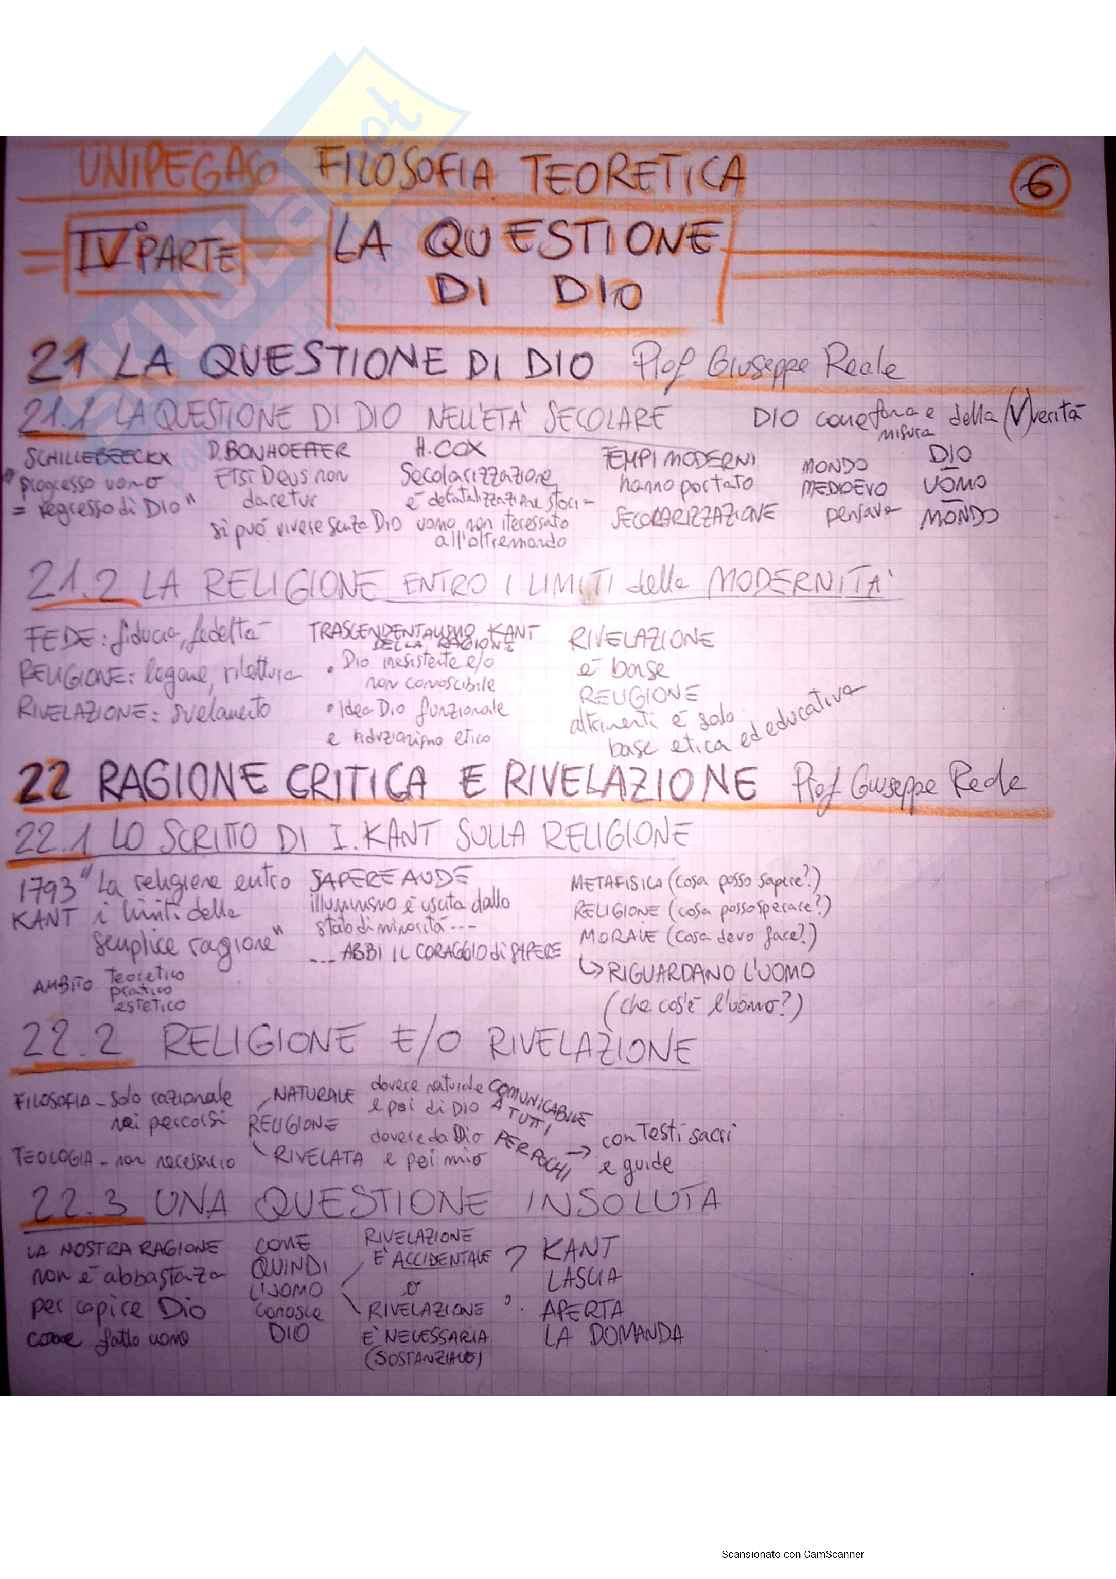 UNIPEGASO FILOSOFIA TEORETICA 6
IV° PARTE
LA QUESTIONE
DI DIO
21 LA QUESTIONE DI DIO Prof Giuseppe Reale
21.1 LA QUESTIONE DI DIO NELL'ETA' SECOLARE
DIO come forma e della (V)verità
misura
SCHILLEBEECKX
"progresso uomo
= regresso di DIO"
D. BONHOEFFER
ETSI Deus non
daretur
si può vivere senza DIO
H. COX
Secolarizzazione
è defatalizzazione stori-
uomo non iteressato
all'oltremondo
TEMPI MODERNI
hanno portato
SECOLARIZZAZIONE
MONDO
MEDIOEVO
pensava
DIO
UOMO
MONDO
21.2 LA RELIGIONE ENTRO I LIMITI della MODERNITA'
FEDE: fiducia, fedeltà
RELIGIONE: legame, rilettura
RIVELAZIONE: svelamento
TRASCENDENTALISMO KANT
DELLA RAGIONE
• Dio inesistente e/o
non conoscibile
• Idea Dio funzionale
e riduzionismo etico
RIVELAZIONE
è base
RELIGIONE
altrimenti è solo
base etica ed educativa
22 RAGIONE CRITICA E RIVELAZIONE Prof Giuseppe Reale
22.1 LO SCRITTO DI I. KANT SULLA RELIGIONE
1793 "La religione entro
KANT i limiti della
semplice ragione"
AMBITO Teoretico
pratico
ESTETICO
SAPERE AUDE
illuminismo è uscita dallo
stato di minorità ---
... ABBI IL CORAGGIO di SAPERE
METAFISICA (cosa posso sapere?)
RELIGIONE (cosa posso sperare?)
MORALE (cosa devo fare?)
↳ RIGUARDANO L'UOMO
(che cos'è l'uomo?)
22.2 RELIGIONE E/O RIVELAZIONE
FILOSOFIA - solo razionale
nei percorsi
TEOLOGIA - non necessario
NATURALE
RELIGIONE
RIVELATA
dovere naturale
e poi di DIO
COMUNICABILE
A TUTTI
dovere da Dio
e poi mio
PER POCHI → con Testi sacri
e guide
22.3 UNA QUESTIONE INSOLUTA
LA NOSTRA RAGIONE
non è abbastanza
per capire Dio
come fatto uomo
COME
QUINDI
L'UOMO
conosce
DIO
RIVELAZIONE
E' ACCIDENTALE ?
O
RIVELAZIONE ?
E' NECESSARIA
(SOSTANZIALE)
KANT
LASCIA
APERTA
LA DOMANDA
Scansionato con CamScanner